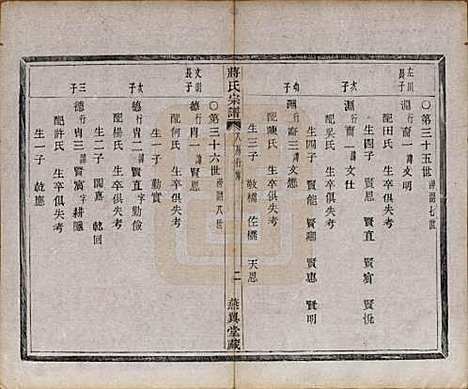 ○第三十五世 浒湖七世
左川長子
淵行 裔一 諱文明
配田氏 生卒俱失考
生四子 賢思 賢直 賢賓 賢恆
次子
淵行 裔二 諱文仕
配梁氏 生卒俱失考
生四子 賢能 賢 賢惠 賢明
淵行 裔三 諱文
配陳氏 生卒俱失考
生三子 佐 天恩
蔣氏宗譜
二 燕翼堂藏
○第三十六世 八世
文明長子
德行 肖一 諱賢思
配何氏 生卒俱失考
生一子 勤實
次子
德行 肖二 諱賢直 字勤儉
配楊氏 生卒俱失考
生二子 開 
三子
德行 肖三 諱賢賓 字耕
配許氏 生卒俱失考
生一子 應